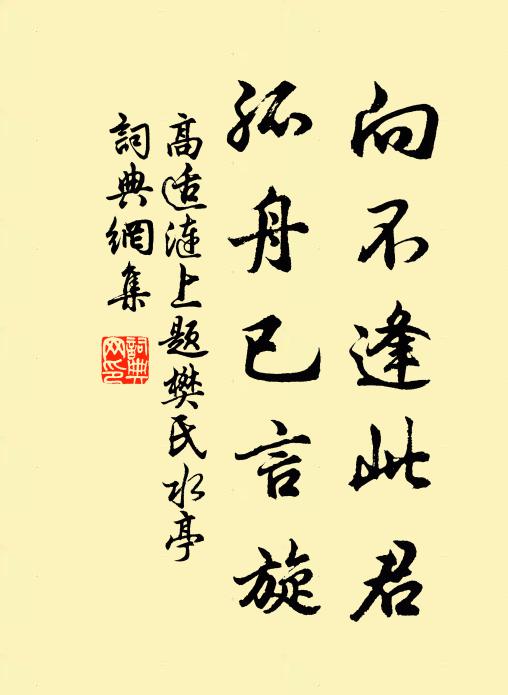 向不逢此君
孤舟已言旋
高适涟上題樊氏水亭
詞典網集
詞典网印